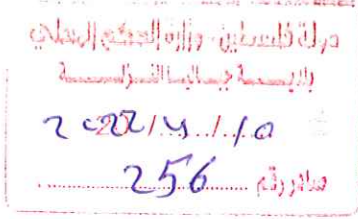 دولة فلسطين - وزارة الحكم المحلي
بلديـــة جبـاليـا النـزلـــة
2022/4/10
صادر رقم ....256....